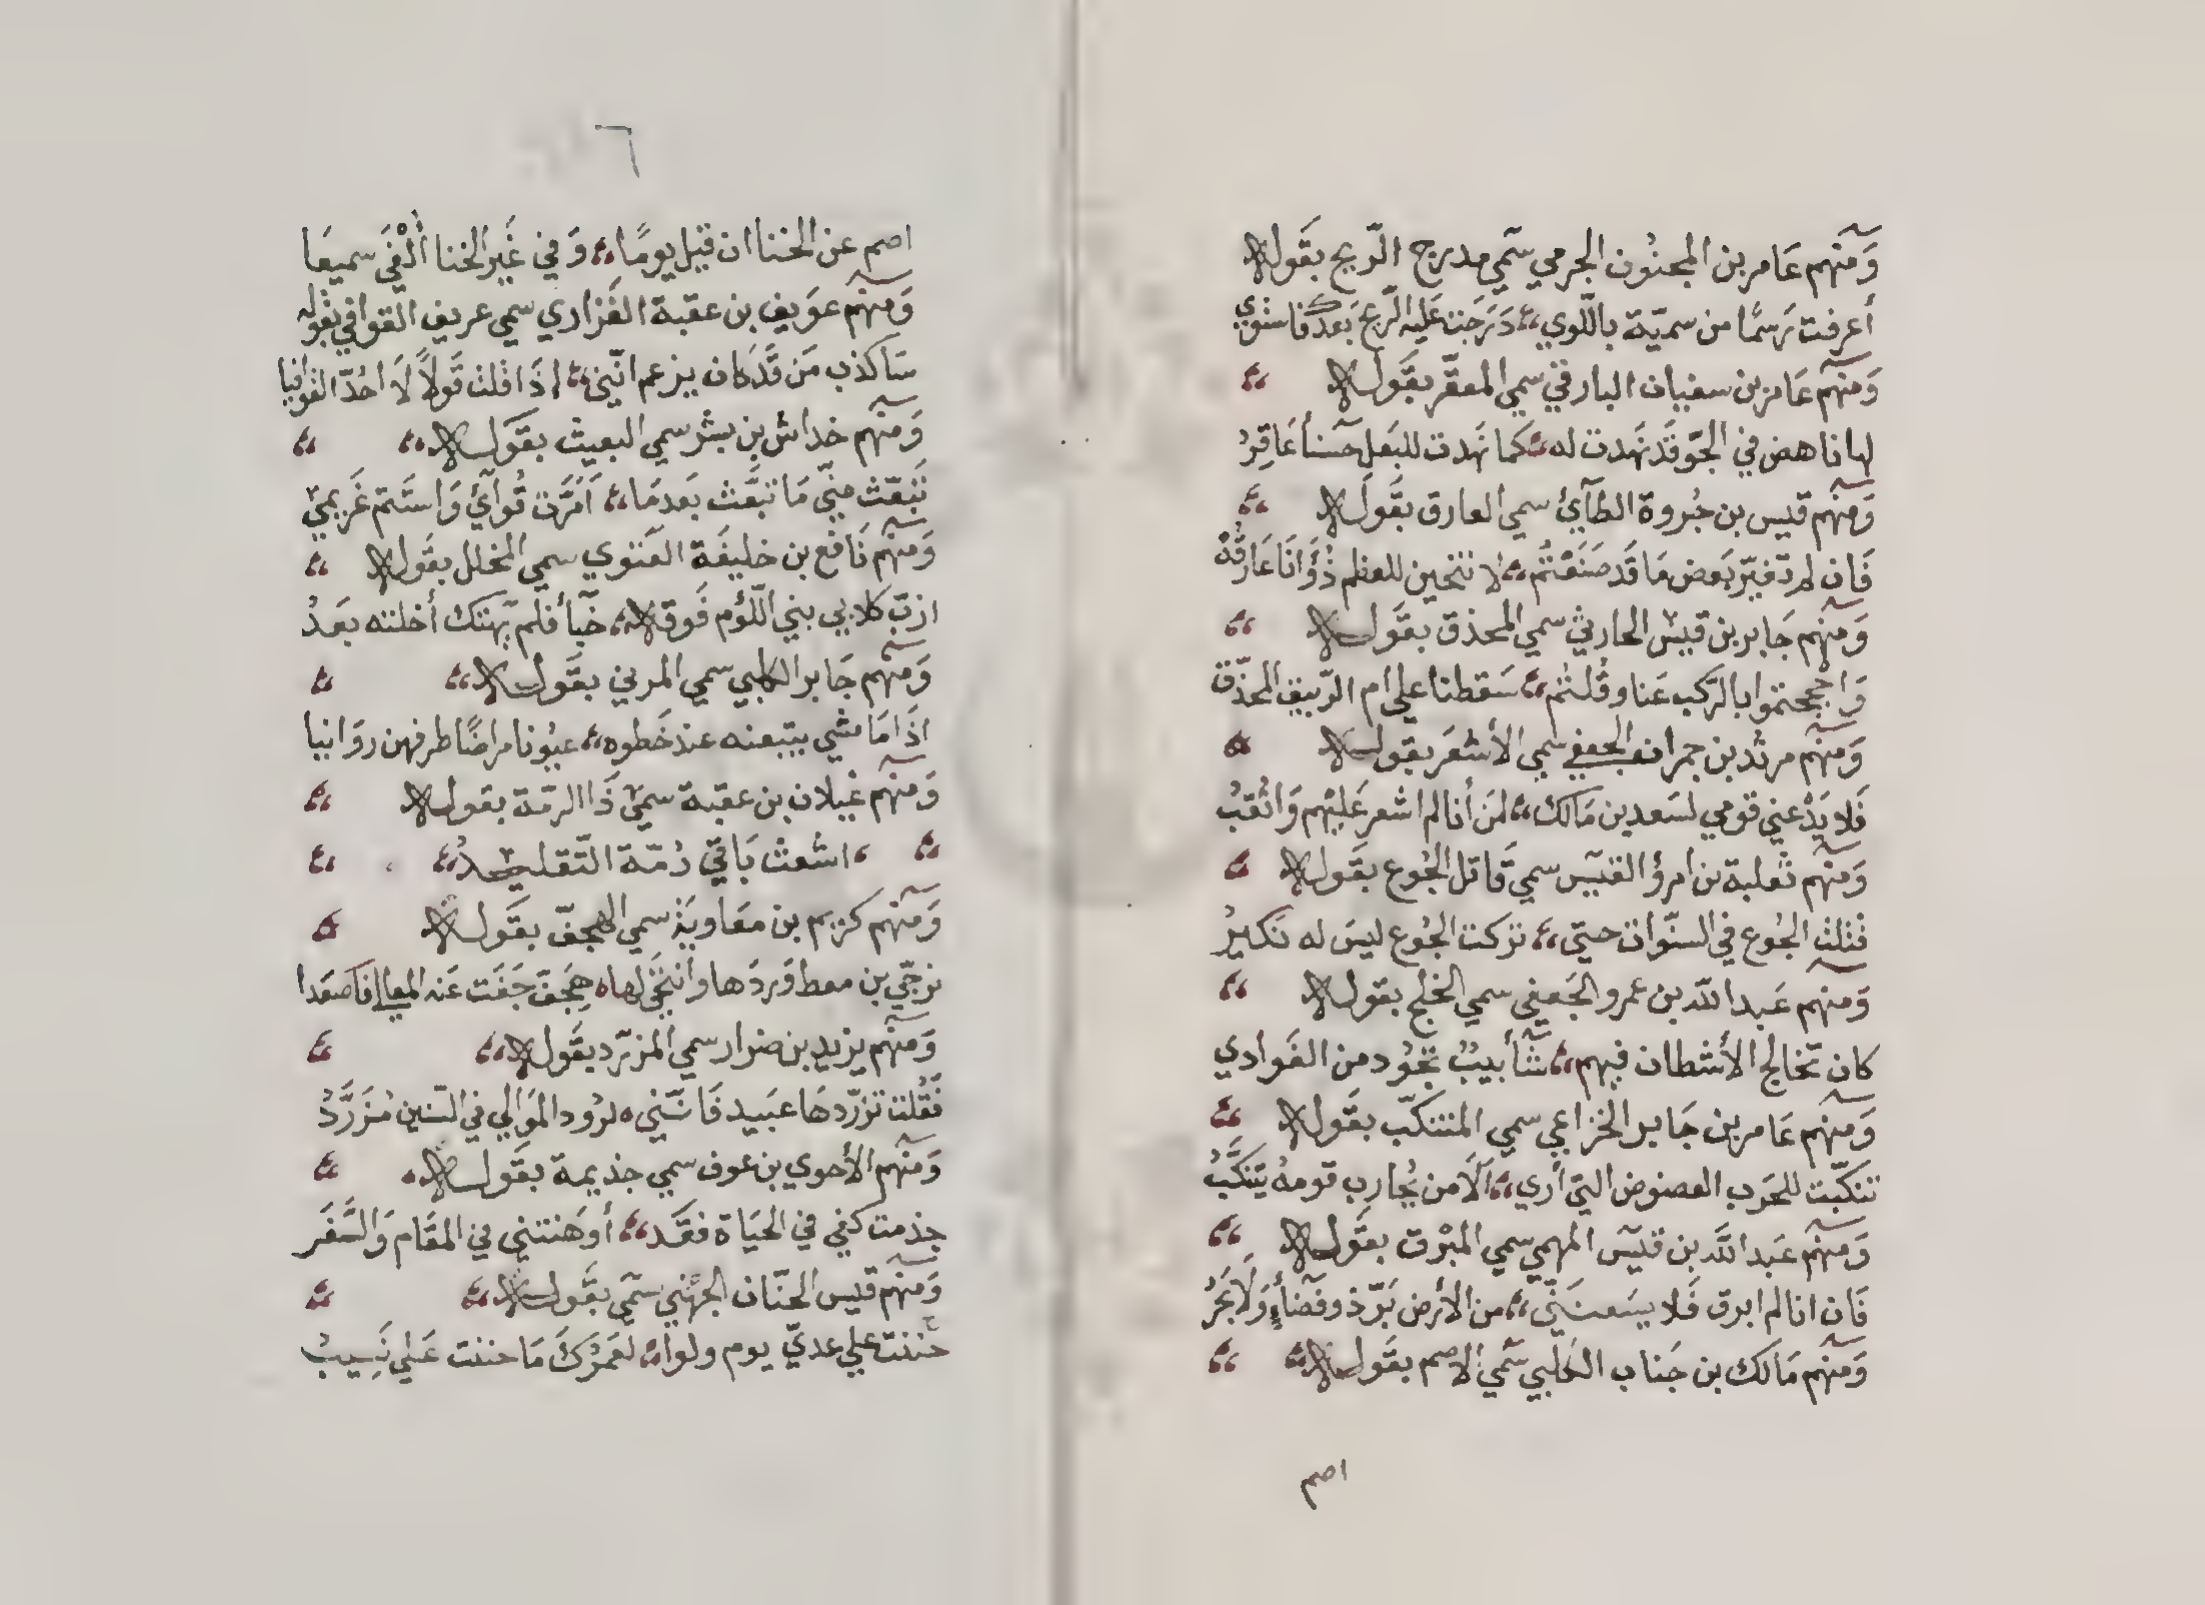 وَمنهم عَامر بن المجنُون الجرمي سمّي مدرج الرّيح بقَوله
أعرفت رَسمًا من سميّة باللّوي دَرَجت عَليه الرّيح بَعدك فاستوي
وَمنهم عَامر بن سفيان البارقي سمي المعقّر بقَوله
لها ناهض في الجَوّ قَد نَهدت له كما نَهدت للبَعل حسنأ عَاقِرُ
وَمنهم قيس بن جُروة الطآئ سمي العارق بقَوله
فَان لم تغيّر بَعض مَا قَد صَنَعْتُم لا نتحين للعظم ذُوْ أنَا عَارقُهْ
وَمنهم جَابر بن قيس الحارثي سمي المحذق بقَوله
وَا بالرّكب عَنا وقُلتُم سَقطنا علي ام الرّبيق المحذّق
وَمنهم مرثد بن حمران الجعفي سمي الأشعَر بقوله
فَلا يَدْعني قومي لسَعد بن مَالك لئن أنا لم اشعر عَليْهم وَاثقبُ
وَمنهم ثعلبة بن امرؤ القيس سمي قَاتل الجُوع بقَوله
قتلت الجُوع في السنّوات حتّي تركت الجُوع ليسَ له نَكيرُ
وَمنهم عَبد الله بن عمرو الجَعفي سمي الخلج بقوله
كان تخالج الأشطان فيهم شأبيبُ تجُود من الغَوادي
وَمنهم عَامر بن جَابر الخزاعي سمي المتنكّب بقَوله
تنكّبت للحَرب العضوض التيّ أري ألَا من يُحارب قومهُ يتَنكَّبُ
وَمنهم عَبد الله بن قيس المهمي سمي المبْرق بقَوله
فَان انا لم ابرق فَلا يسَعنَنّي من الأرض بَرّ ذو فضَأءٍ وَلَا بَحَرُ
وَمنهم مَالك بن جَناب الكلبي سمّي الاصم بقَوله
اصم
٦
اصم عن الخنا ان قيل يومًا وَفي غَير الخنا أُلْفَي سميعَا
وَمنهم عوَيف بن عقبة الفَزاري سمي عريف القوافي بقَوله
سَاكذب مَن قَد كَان يزعم انّني إذَا قلت قَولاً لَا اجُدّ القوافيا
وَمنهم خداش بن بشر سمي البعيث بقَوله
تَبَعّث منّي مَا تبَعّث بَعدمَا أمَرَّت قُوآئ وَاستَتم غَريميّ
وَمنهم نَافع بن خليفَة الغَنوي سمي المخلل بقَوله
ازبّ كلابي بني اللّؤم فَوقه خبَأ فلم تهتك أخلته بعَدُ
وَمنهم جَابر الكلبي سمي المرني بقَوله
اذَا مَا مشي يتبعنه عند خَطوه عيُونا مراضًا طرفهن روَانيا
وَمنهم غيلان بن عقبة سميّ ذَا الرمّة بقوله
اشعث بَاقيّ رُمّة التّقليدُ
وَمنهم كريم بن معَاوية سمي الهجفّ بقَوله
نرجّي بن معط وَردَها وأنتَحَي لها هِجَفّ جَفَت عَنه الموالي فَاصعَدا
وَمنهم يزيد بن ضرار سمي المزرّد بقَوله
فَقُلت تزرّدهَا عبَيد فَانّني لزرُود المَوالي في السّنين مُزَرَّدُ
وَمنهم الأحوي بن عوف سمي جذيمة بقَوله
جذمت كفي في الحيَاة فقَد أوهَنتني في المقَام وَالسَّفَر
وَمنهم قيس الحنّان الجهُني سمّي بقَوله
حننت علي عديّ يوم ولوا لعَمرُكَ مَا حننت عَلي نَسِيبُ